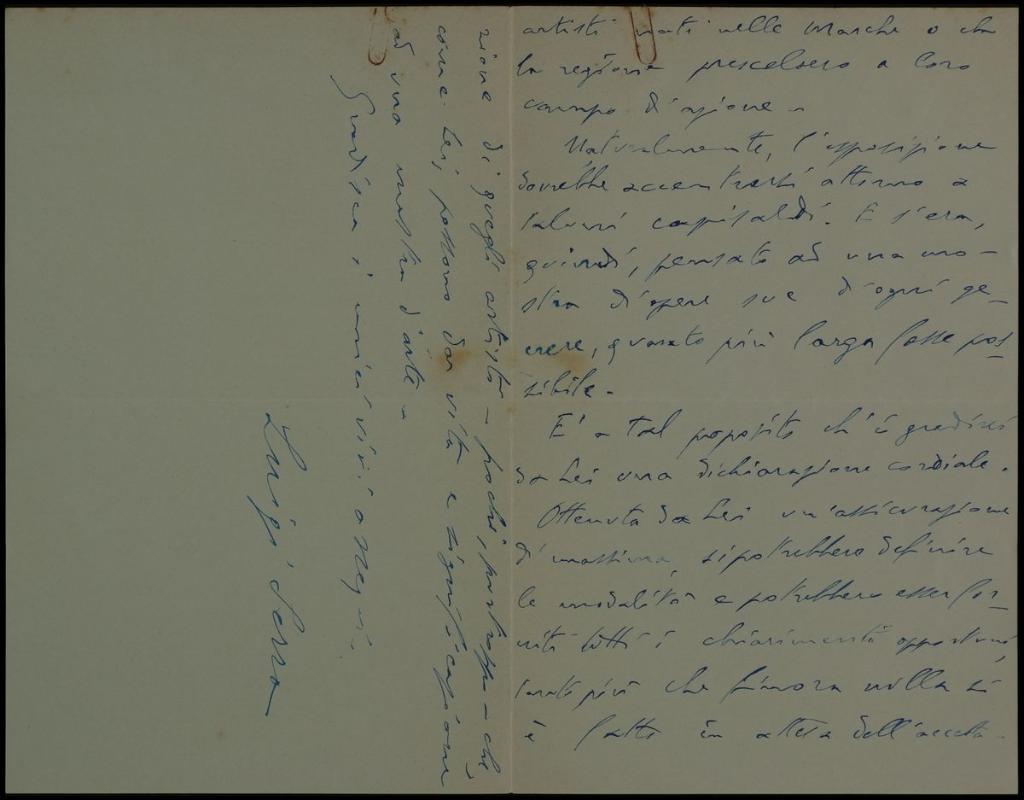 artisti nati nelle Marche o che
la regione prescelsero a loro
campo d'azione -
Naturalmente, l'esposizione
dovrebbe accentrarsi attorno a
taluni capisaldi. E s'era,
quindi, pensato ad una mo-
stra d'opere sue d'ogni ge-
nere, quanto più larga fosse pos-
sibile -
E' a tal proposito ch'io gradirei
da Lei una dichiarazione cordiale.
Ottenuta da Lei un'assicurazione
di massima, si potrebbero definire
le modalità e potrebbero esser for-
niti tutti i chiarimenti opportuni,
tanto più che finora nulla si
è fatto in attesa dell'accetta-
zione di quegli artisti - pochi, purtroppo - che,
come Lei, possono dar vita e significazione
ad una mostra d'arte -
Gradisca i miei vivi ossequi.
Luigi Serra